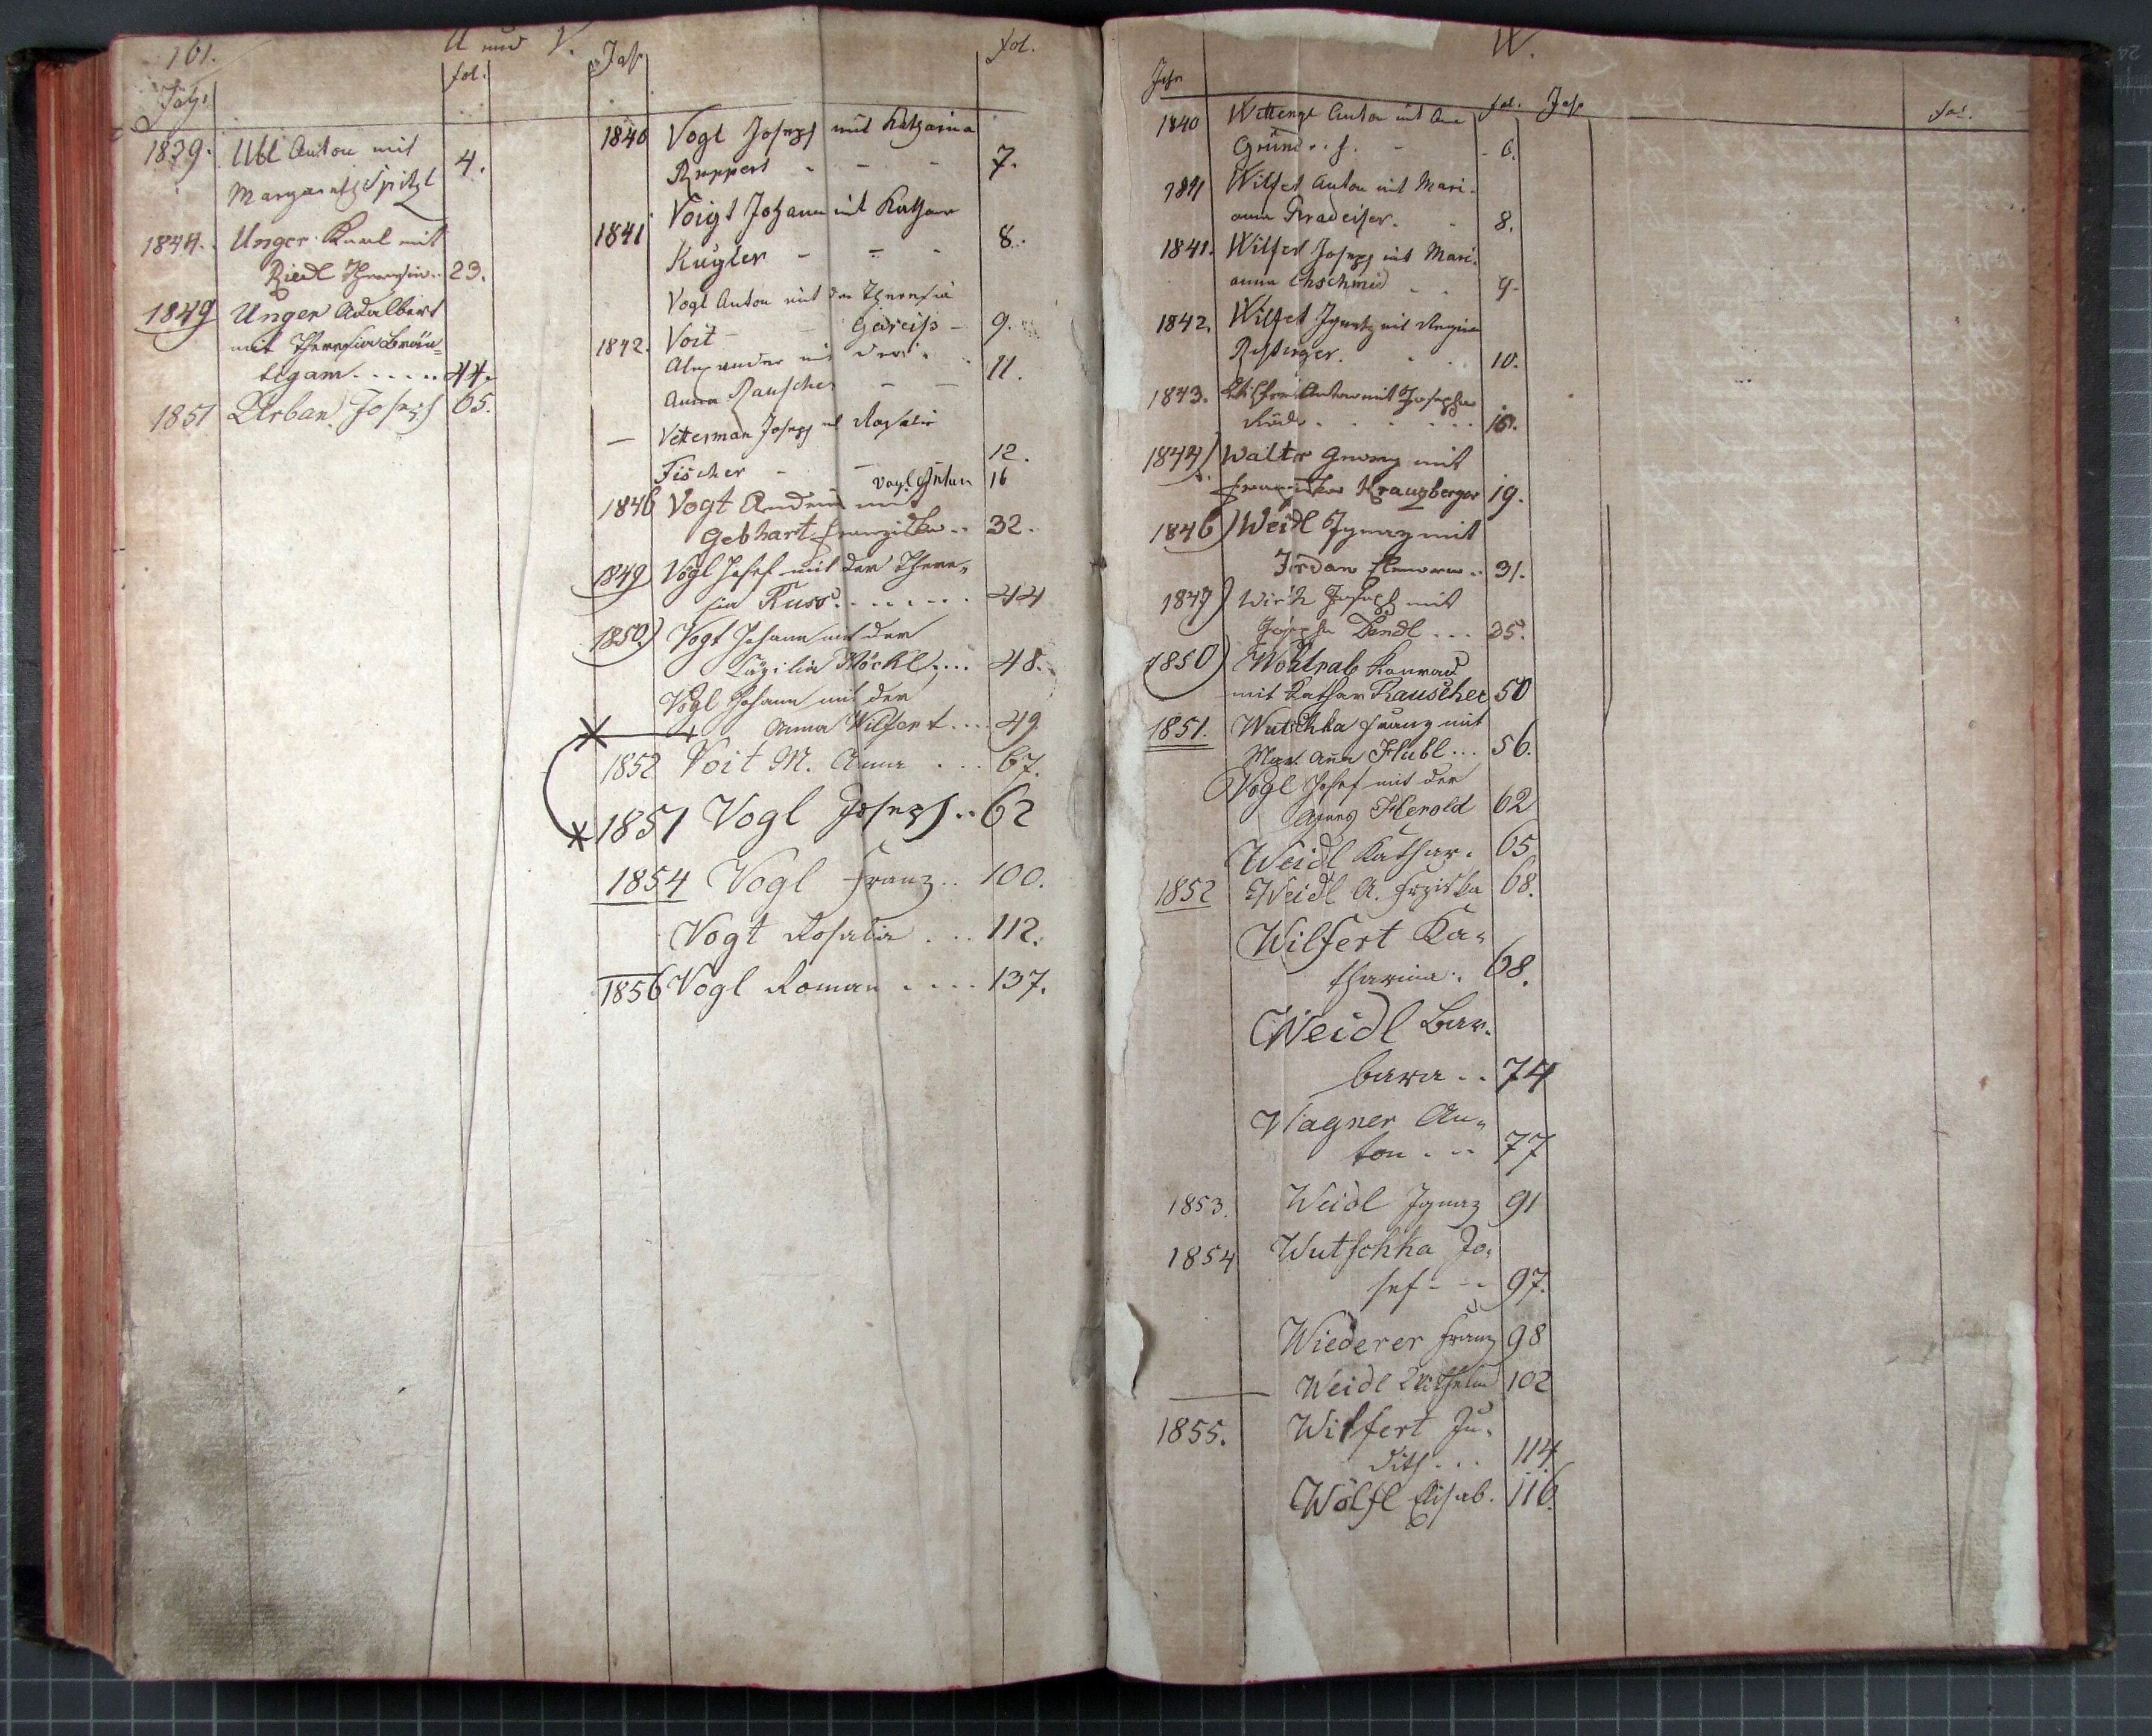 161.
U und V.
Jahr
fol.
1839. Ubl Anton mit
Margareth Spitzl 4.
1844. Unger Karl mit
Riedl Theresia.. 23.
1849 Unger Adalbert
mit Theresia Bräu=
tigam...... 44.
1851 Urban Joseph 65.
Jahr
fol.
1840 Vogl Joseph mit Katharina
Ruppert - - - 7.
1841 Voigt Johann mit Kathar
Kugler - - - 8.
Vogl Anton mit der Theresia
Gareiß - 9.
1842. Voit
Alexander mit der
Anna Rauscher - - 11.
— Vetterman Joseph mit Rosalia
Fischer - - 12.
Vogl Anton 16
1846 Vogt Andreas mit
Gebhart Franziska.. 32.
1849) Vogl Josef mit der There=
sia Russ....... 44
1850) Vogt Johann mit der
Cäzilia Stöckl.... 48.
Vogl Johann mit der
Anna Wilfert.... 49
1852 Voit M. Anna ... 67.
1851 Vogl Joseph.. 62
1854 Vogl Franz.. 100.
Vogt Rosalia ... 112.
1856 Vogl Roman .... 137.
W.
Jahr
fol. Jahr
fol.
1840 Wettengl Anton mit Ann
6.
1841 Wilfert Anton mit Mari-
anna Gradeiser. - 8.
1841. Wilfert Joseph mit Mari-
anna . . 9.
1842. Wilfert Ignatz mit Regina
10.
1843. Wilfert Anton mit Josepha
1844) Walter Georg mit
Franziska Kranzberger 19.
1846) Weidl Ignaz mit
Jordan Eleonora.. 31.
1847) Wirk Joseph mit
Josepha Dendl ... 35.
1850) Wohlrab Konrad
mit Kathar Rauscher 50
1851. Wutschka Franz mit
Mar. Anna Hubl... 56.
Vogl Josef mit der
Agnes Herold 62
Weidl Kathar. 65
1852 Weidl A. Frziska 68.
Wilfert Ka=
tharina. 68.
Weidl Bar=
bara .. 74
Wagner An=
ton ... 77
1853. Weidl Ignaz 91
1854 Wutschka Jo=
sef - - - 97.
Wiederer Franz 98
— Weidl Wilhelm 102
1855. Wilfert Ju=
dith ... 114.
Wölfl Elisab. 116.